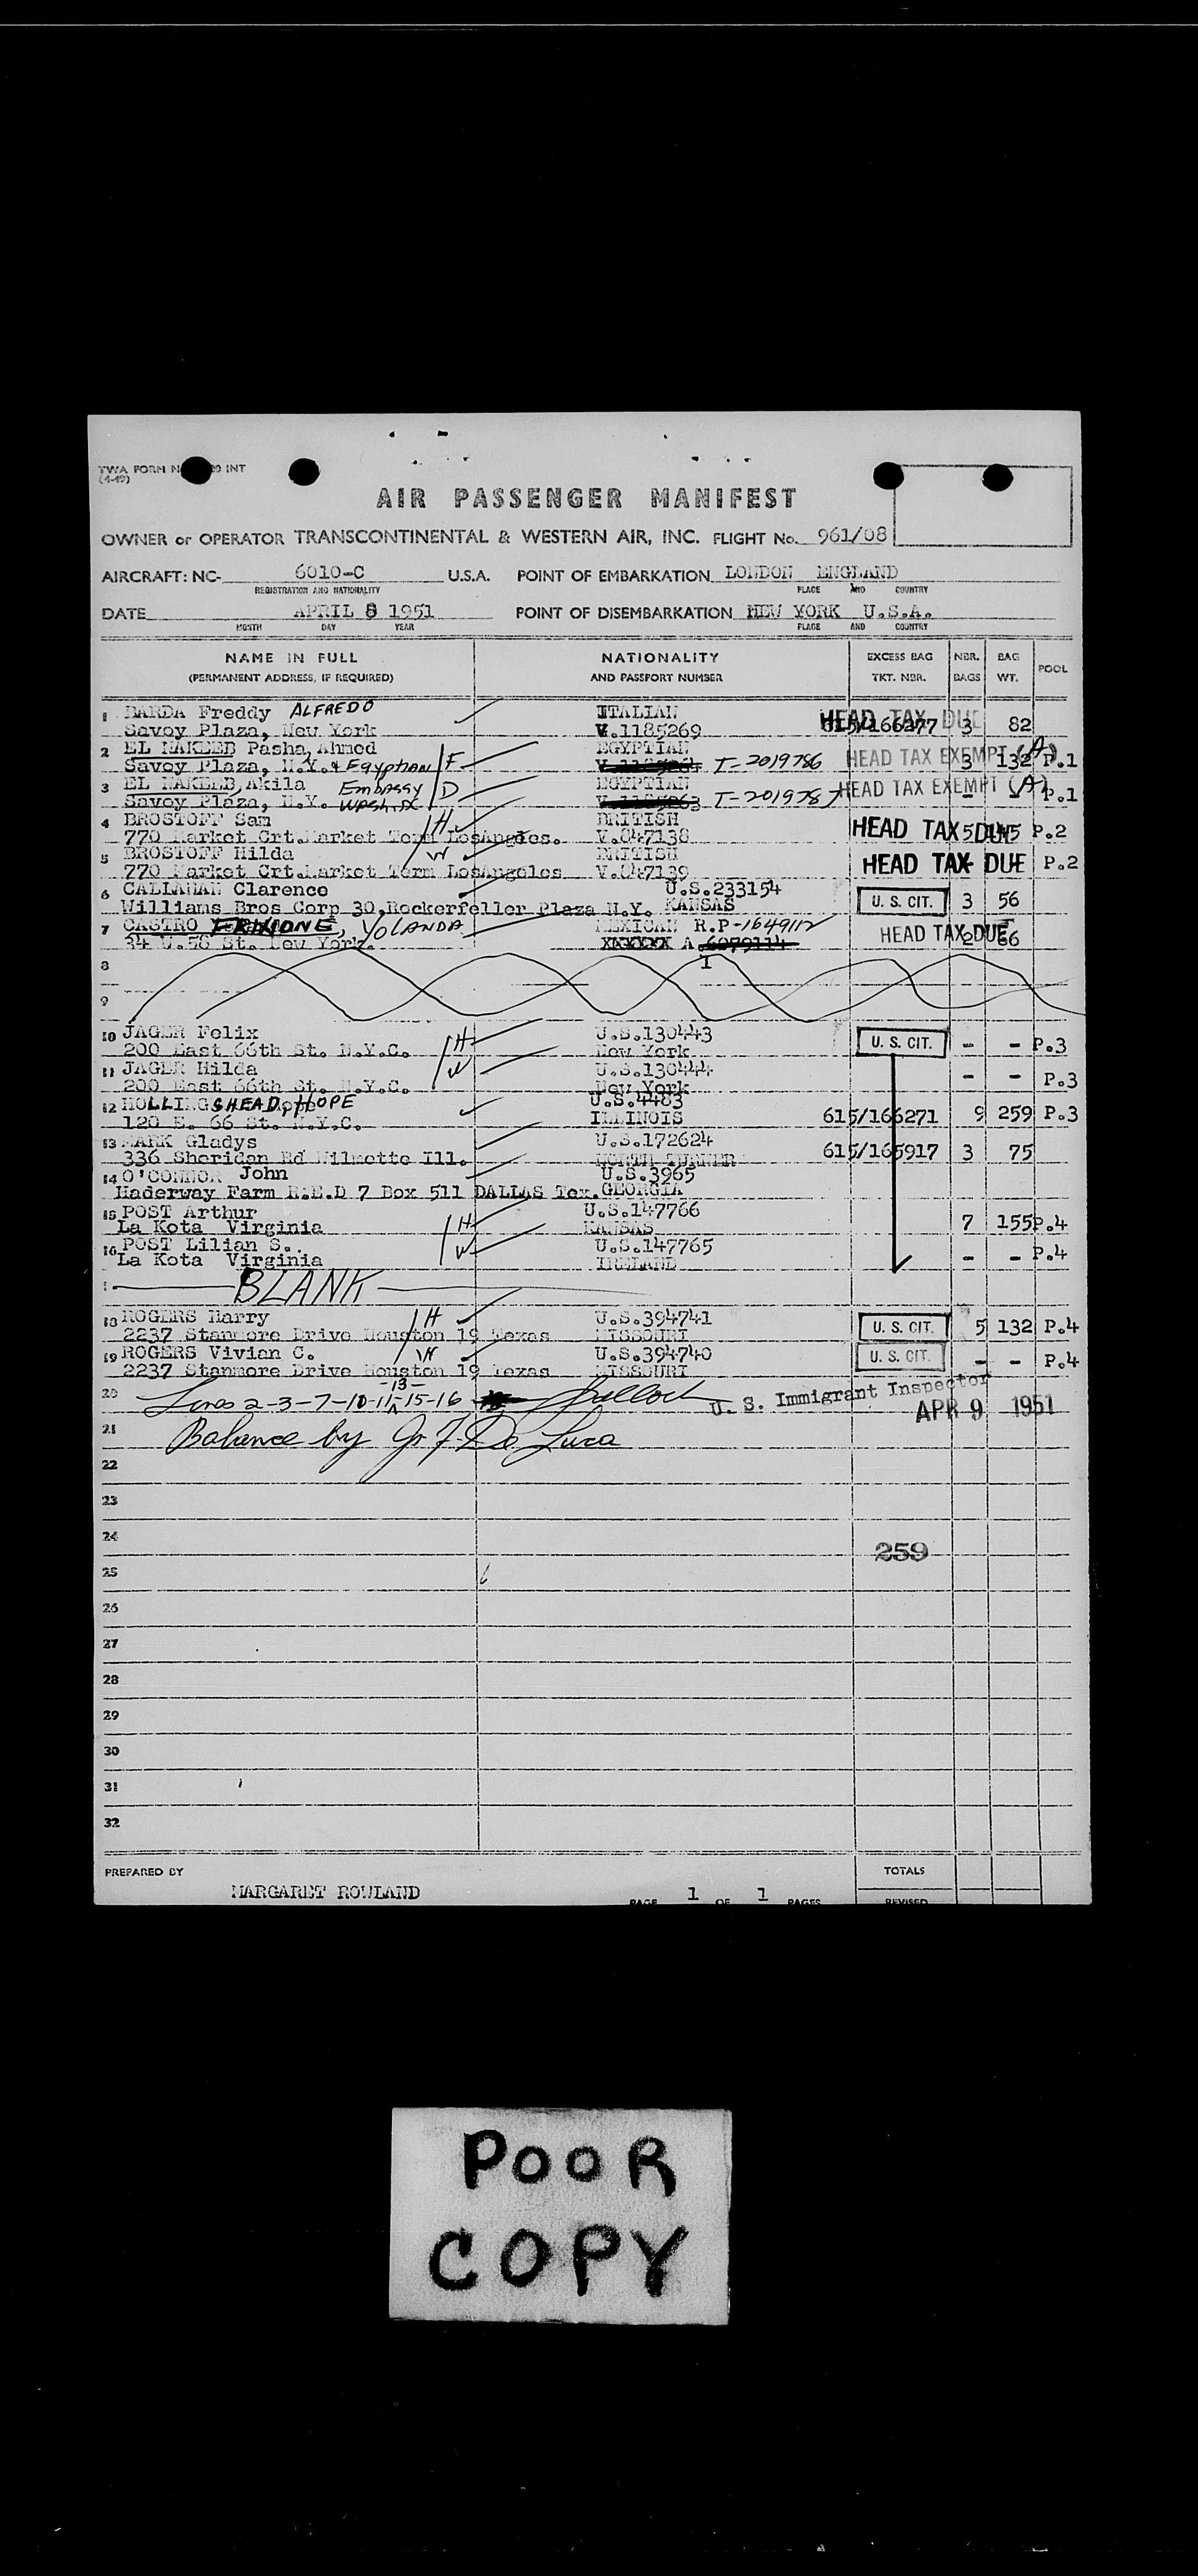 TWA FORM N 00 INT
(4-49)
AIR PASSENGER MANIFEST
OWNER or OPERATOR TRANSCONTINENTAL & WESTERN AIR, INC. FLIGHT No. 961/08
AIRCRAFT: NC- 6010-C U.S.A. POINT OF EMBARKATION LONDON ENGLAND
REGISTRATION AND NATIONALITY PLACE AND COUNTRY
DATE APRIL 8 1951 POINT OF DISEMBARKATION NEW YORK U.S.A.
MONTH DAY YEAR PLACE AND COUNTRY
NAME IN FULL NATIONALITY EXCESS BAG NBR. BAG POOL
(PERMANENT ADDRESS, IF REQUIRED) AND PASSPORT NUMBER TKT. NBR. BAGS WT.
1 BARDA Freddy ALFREDO ITALIAN HEAD TAX DUE
Savoy Plaza, New York V.1185269 615/166277 3 82
2 EL NAKEEB Pasha, Ahmed EGYPTIAN
Savoy Plaza, N.Y. & Egyptian /F T-2019786 HEAD TAX EXEMPT (A) 3 132 P.1
3 EL NAKEEB, Akila Embassy EGYPTIAN HEAD TAX EXEMPT (A)
Savoy Plaza, N.Y. WASH, DC /D T-2019787 - - P.1
4 BROSTOFF Sam /H BRITISH
770 Market Crt.Market Term LosAngeles. V.047138 HEAD TAX DUE 5 145 P.2
5 BROSTOFF Hilda /W BRITISH
770 Market Crt.Market Term LosAngeles V.047139 HEAD TAX DUE P.2
6 CALLAHAN Clarence U.S.233154
Williams Bros Corp 30,Rockerfeller Plaza N.Y. KANSAS U. S. CIT. 3 56
7 CASTRO FRIXIONE, YOLANDA MEXICAN R.P-1649112
34 U.56 St. New York. XXXXXX A 6079114 HEAD TAX DUE 2 66
8 I
9
10 JAGER Felix /H U.S.130443
200 East 66th St. N.Y.C. New York U. S. CIT. - - P.3
11 JAGER Hilda /W U.S.130444
200 East 66th St. N.Y.C. New York - - P.3
12 HOLLINGSHEAD, HOPE U.S.4483
120 E. 66 St. N.Y.C. ILLINOIS 615/166271 9 259 P.3
13 MARK Gladys U.S.172624
336 Sheridan Rd Wilmette Ill. NORTH TURNER 615/165917 3 75
14 O'CONNOR John U.S.3965
Haderway Farm R.E.D 7 Box 511 DALLAS Tex. GEORGIA
15 POST Arthur /H U.S.147766
La Kota Virginia KANSAS 7 155 P.4
16 POST Lilian S. /W U.S.147765
La Kota Virginia IRELAND - - P.4
BLANK
18 ROGERS Harry /H U.S.394741
2237 Stanmore Drive Houston 19 Texas MISSOURI U. S. CIT. 5 132 P.4
19 ROGERS Vivian C. /W U.S.394740
2237 Stanmore Drive Houston 19 Texas MISSOURI U. S. CIT. - - P.4
20 Lines 2-3-7-10-11-13-15-16 U. S. Immigrant Inspector
APR 9 1951
21 Balance by G. F. De Luca
22
23
24
259
25
26
27
28
29
30
31
32
PREPARED BY TOTALS
MARGARET ROWLAND PAGE 1 OF 1 PAGES REVISED
POOR
COPY